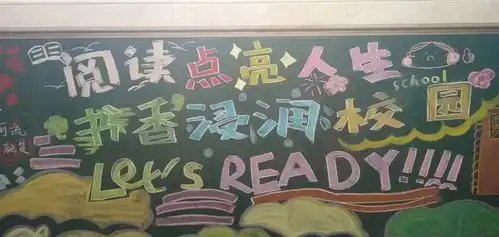 阅读点亮人生
school
书香浸润校园
Let's READY!!!!!